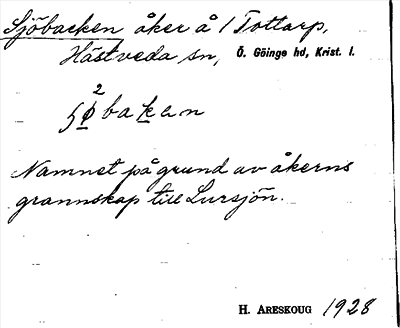 Sjöbacken åker å 1 Tottarp,
Hästveda sn, Ö. Göinge hd, Krist. l.
2
ʃøbakan
Namnet på grund av åkerns
grannskap till Lursjön.
H. ARESKOUG 1928